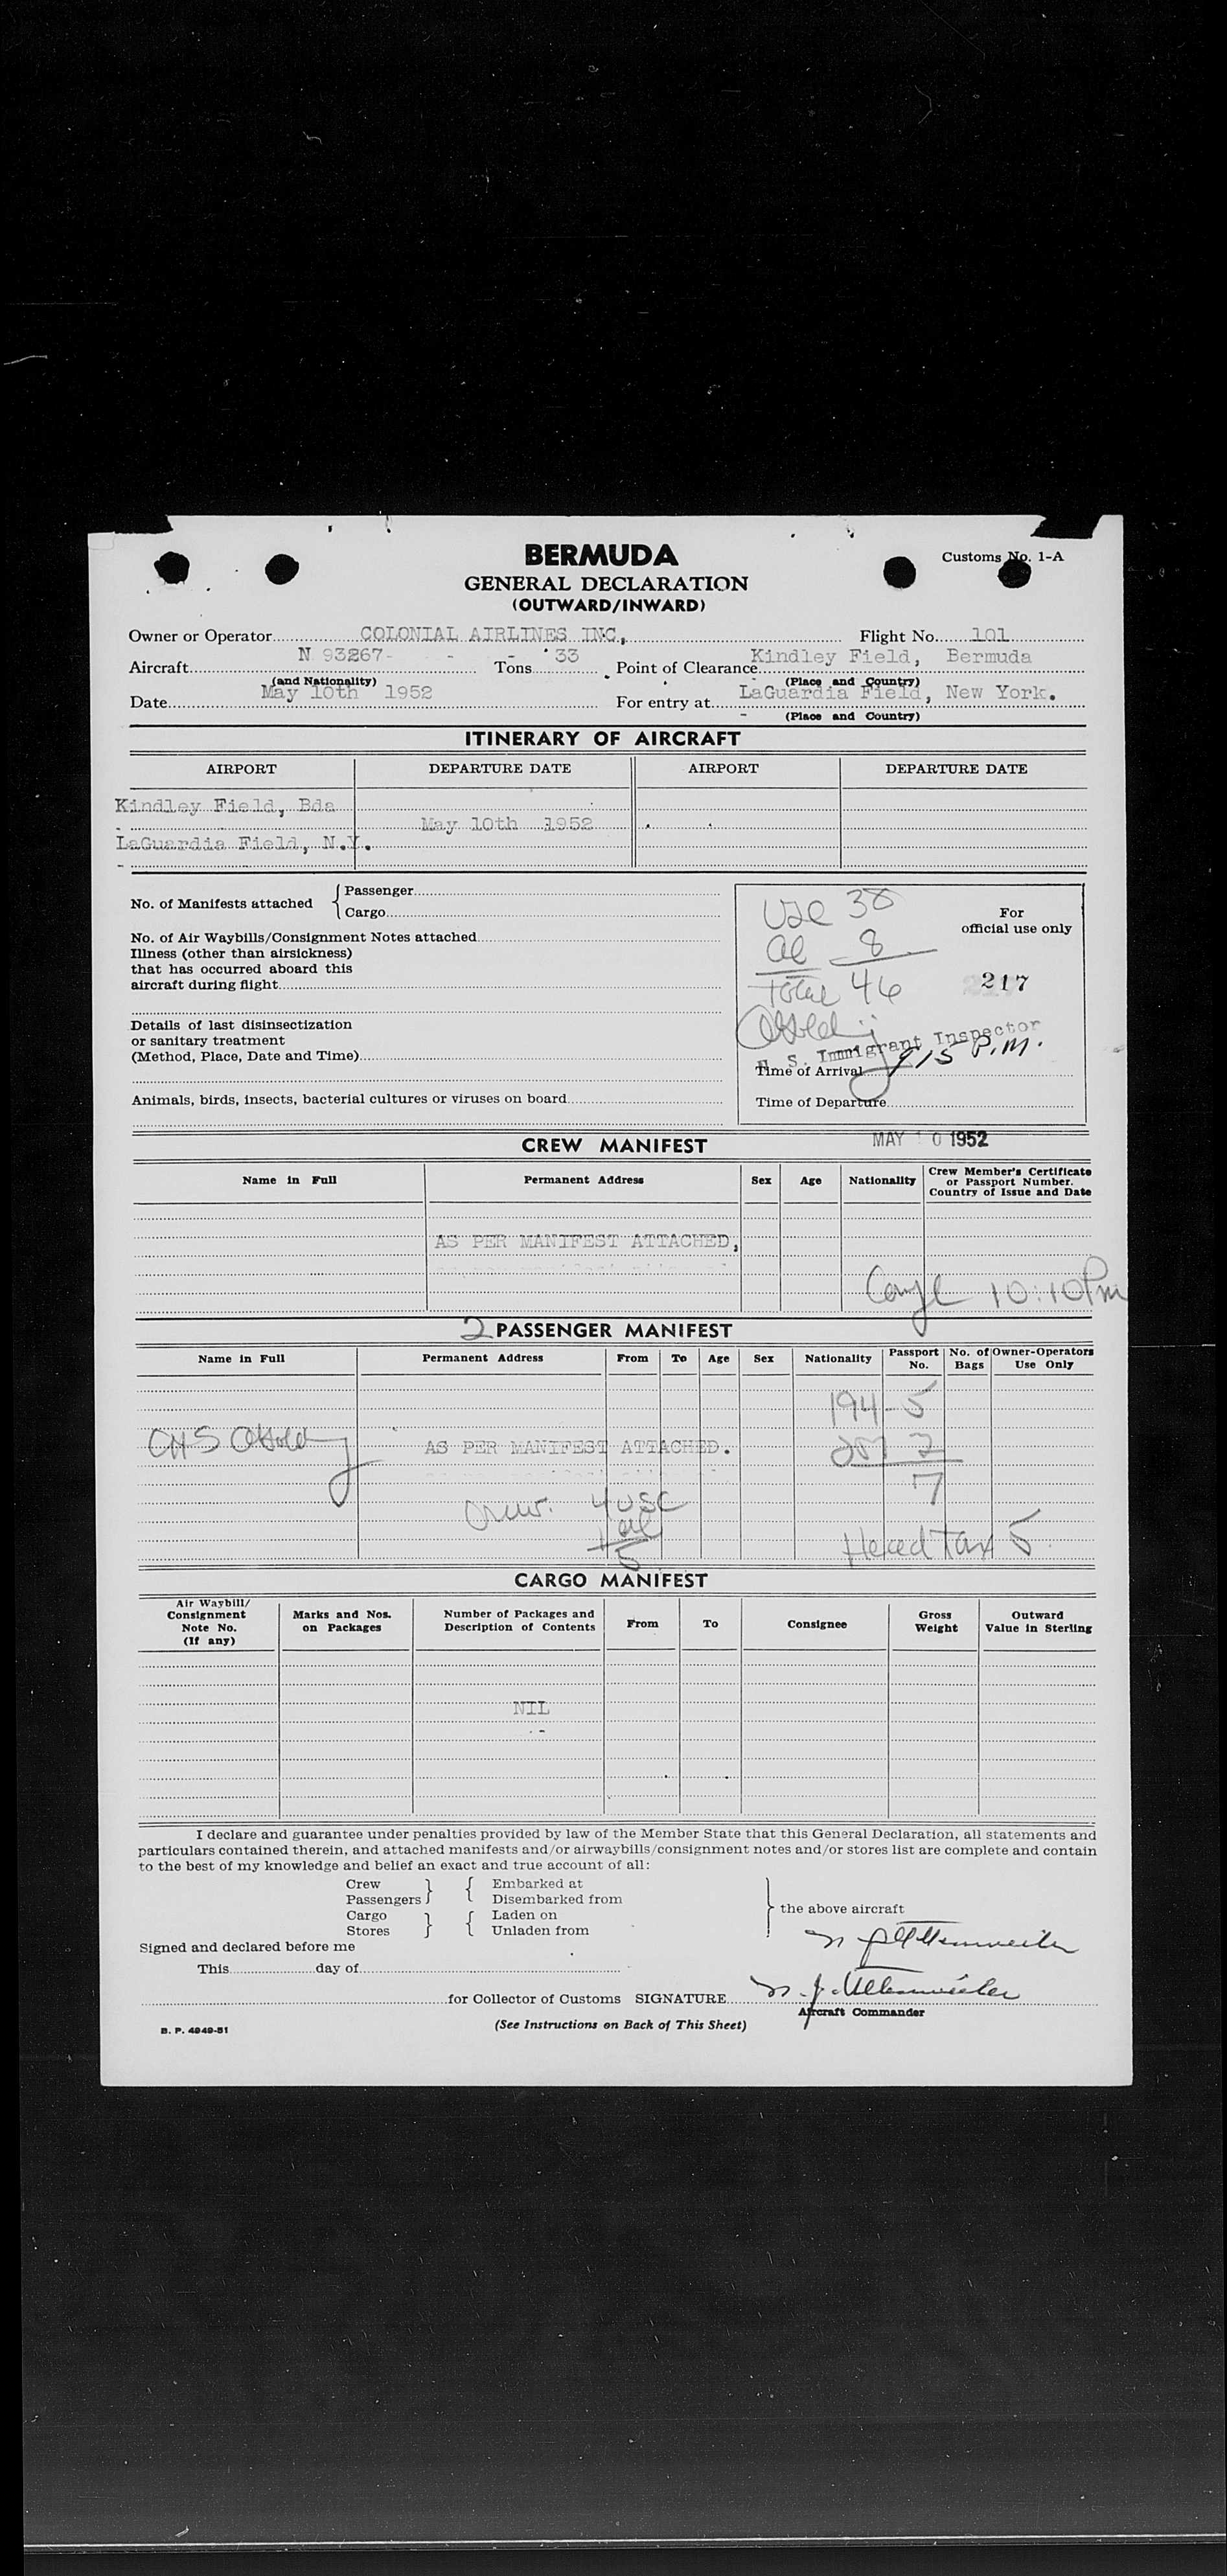 BERMUDA
Customs No. 1-A
GENERAL DECLARATION
(OUTWARD/INWARD)
Owner or Operator COLONIAL AIRLINES INC, Flight No. 101
Aircraft N 93267- - - Tons '33 Point of Clearance Kindley Field, Bermuda
(and Nationality) (Place and Country)
Date May 10th 1952 For entry at LaGuardia Field, New York.
(Place and Country)
ITINERARY OF AIRCRAFT
AIRPORT DEPARTURE DATE AIRPORT DEPARTURE DATE
Kindley Field, Bda
May 10th 1952
LaGuardia Field, N.Y.
No. of Manifests attached { Passenger
Cargo
No. of Air Waybills/Consignment Notes attached
Illness (other than airsickness)
that has occurred aboard this
aircraft during flight
Details of last disinsectization
or sanitary treatment
(Method, Place, Date and Time)
Animals, birds, insects, bacterial cultures or viruses on board
USC 38
al 8
Total 46
For
official use only
217
U. S. Immigrant Inspector
Time of Arrival 915 P.M.
Time of Departure
MAY 10 1952
CREW MANIFEST
Name in Full Permanent Address Sex Age Nationality Crew Member's Certificate
or Passport Number.
Country of Issue and Date
AS PER MANIFEST ATTACHED,
10:10 Pm
2 PASSENGER MANIFEST
Name in Full Permanent Address From To Age Sex Nationality Passport No. No. of Bags Owner-Operators Use Only
194-5
AS PER MANIFEST ATTACHED.
257 2
7
Crew. 4 USC
1 al
5
Head Tax 5
CARGO MANIFEST
Air Waybill/
Consignment
Note No.
(If any)
Marks and Nos.
on Packages
Number of Packages and
Description of Contents
From To Consignee
Gross
Weight
Outward
Value in Sterling
NIL
I declare and guarantee under penalties provided by law of the Member State that this General Declaration, all statements and
particulars contained therein, and attached manifests and/or airwaybills/consignment notes and/or stores list are complete and contain
to the best of my knowledge and belief an exact and true account of all:
Crew } { Embarked at
Passengers Disembarked from
Cargo } { Laden on
Stores Unladen from
} the above aircraft
Signed and declared before me
This day of
for Collector of Customs SIGNATURE
Aircraft Commander
(See Instructions on Back of This Sheet)
B. P. 4949-51